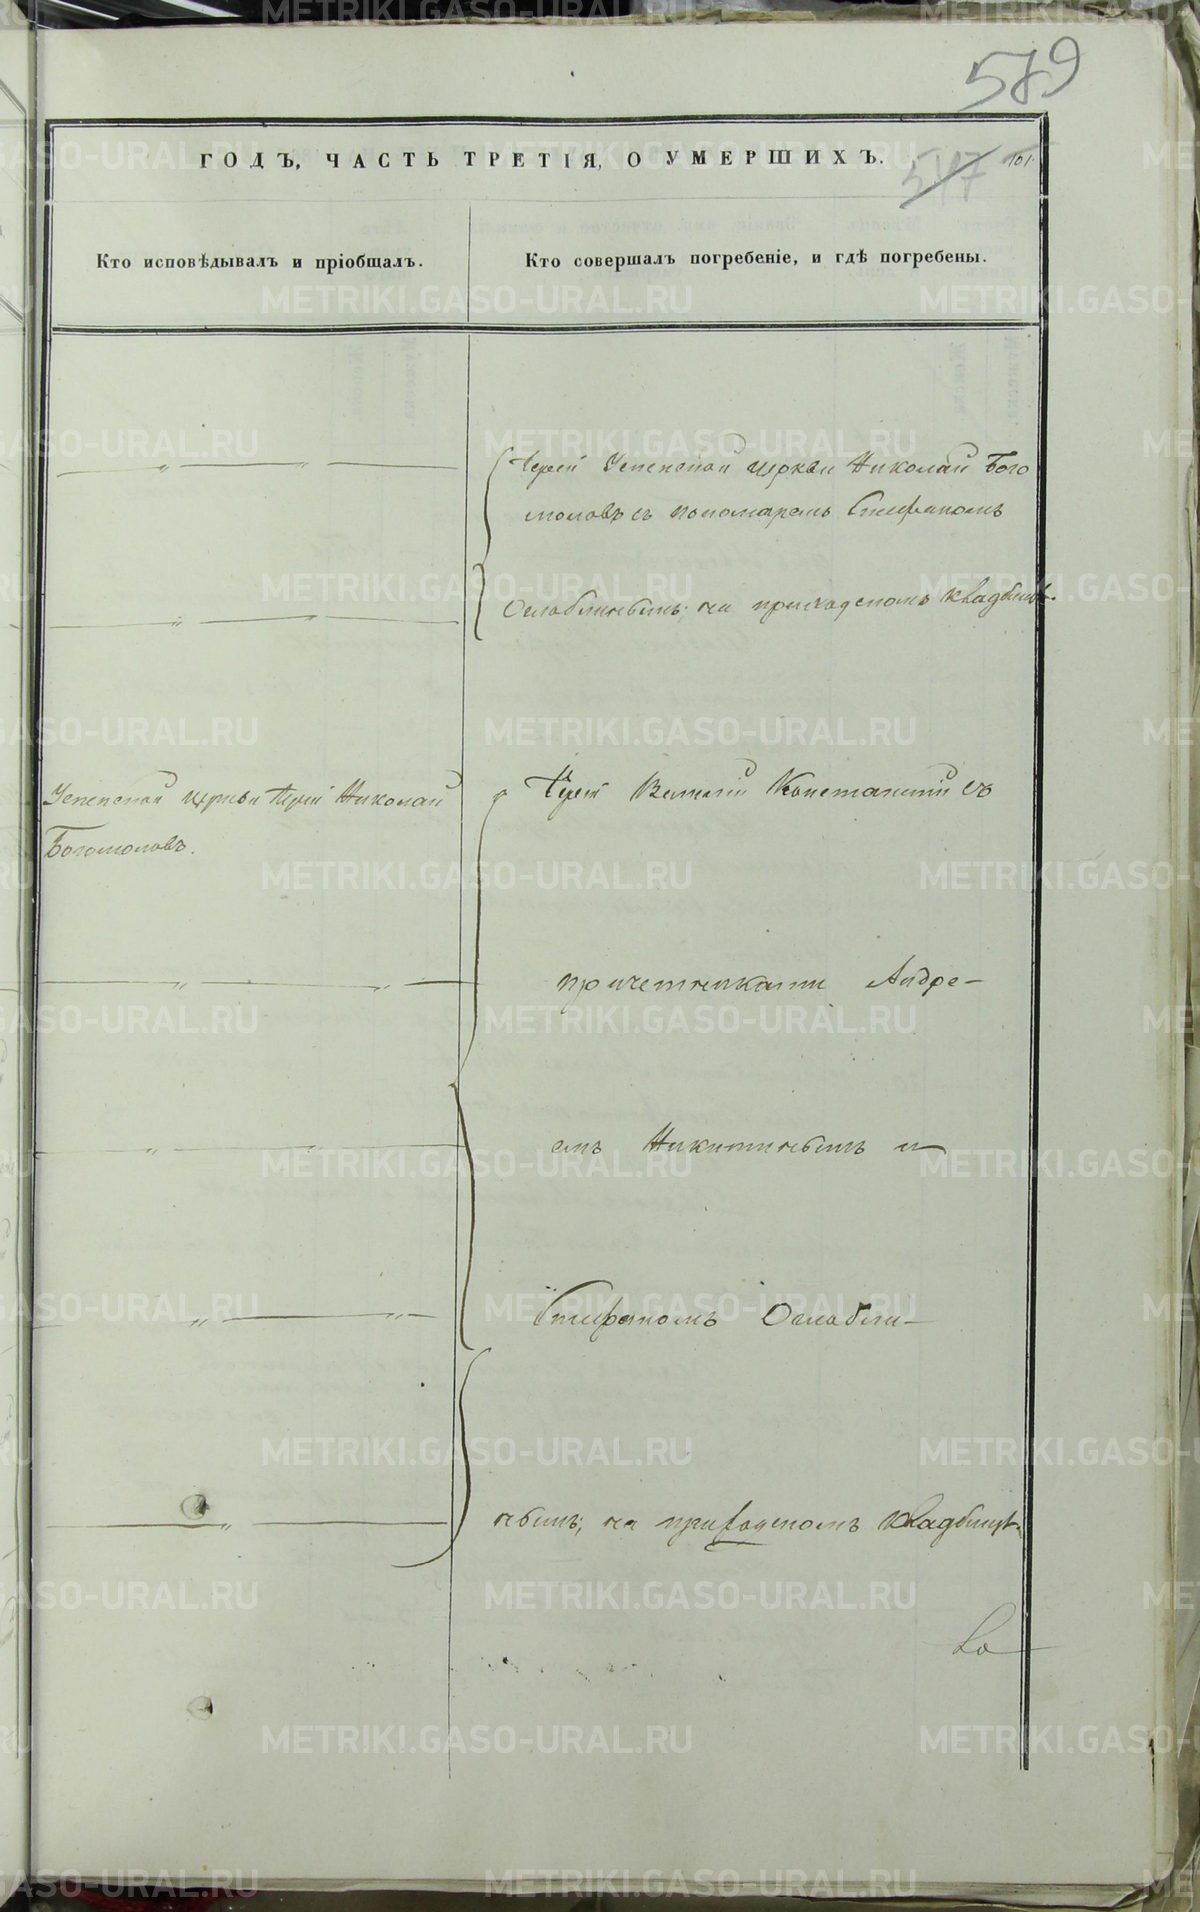 579
ГОДЪ, ЧАСТЬ ТРЕТІЯ, О УМЕРШИХЪ.
547
101
Кто исповѣдывалъ и пріобщалъ.
Кто совершалъ погребеніе, и гдѣ погребены.
Іерей Успенской церкви Николай Бого
моловъ съ пономаремъ Стефаномъ
Оглоблинымъ; на приходскомъ кладбищѣ.
Успенской церкви Іерей Николай
Богомоловъ.
Іерей Василій Констанскій съ
причетниками Андре-
емъ Никитинымъ и
Стефаномъ Оглобли-
нымъ; на приходскомъ кладбищѣ.
METRIKI.GASO-URAL.RU